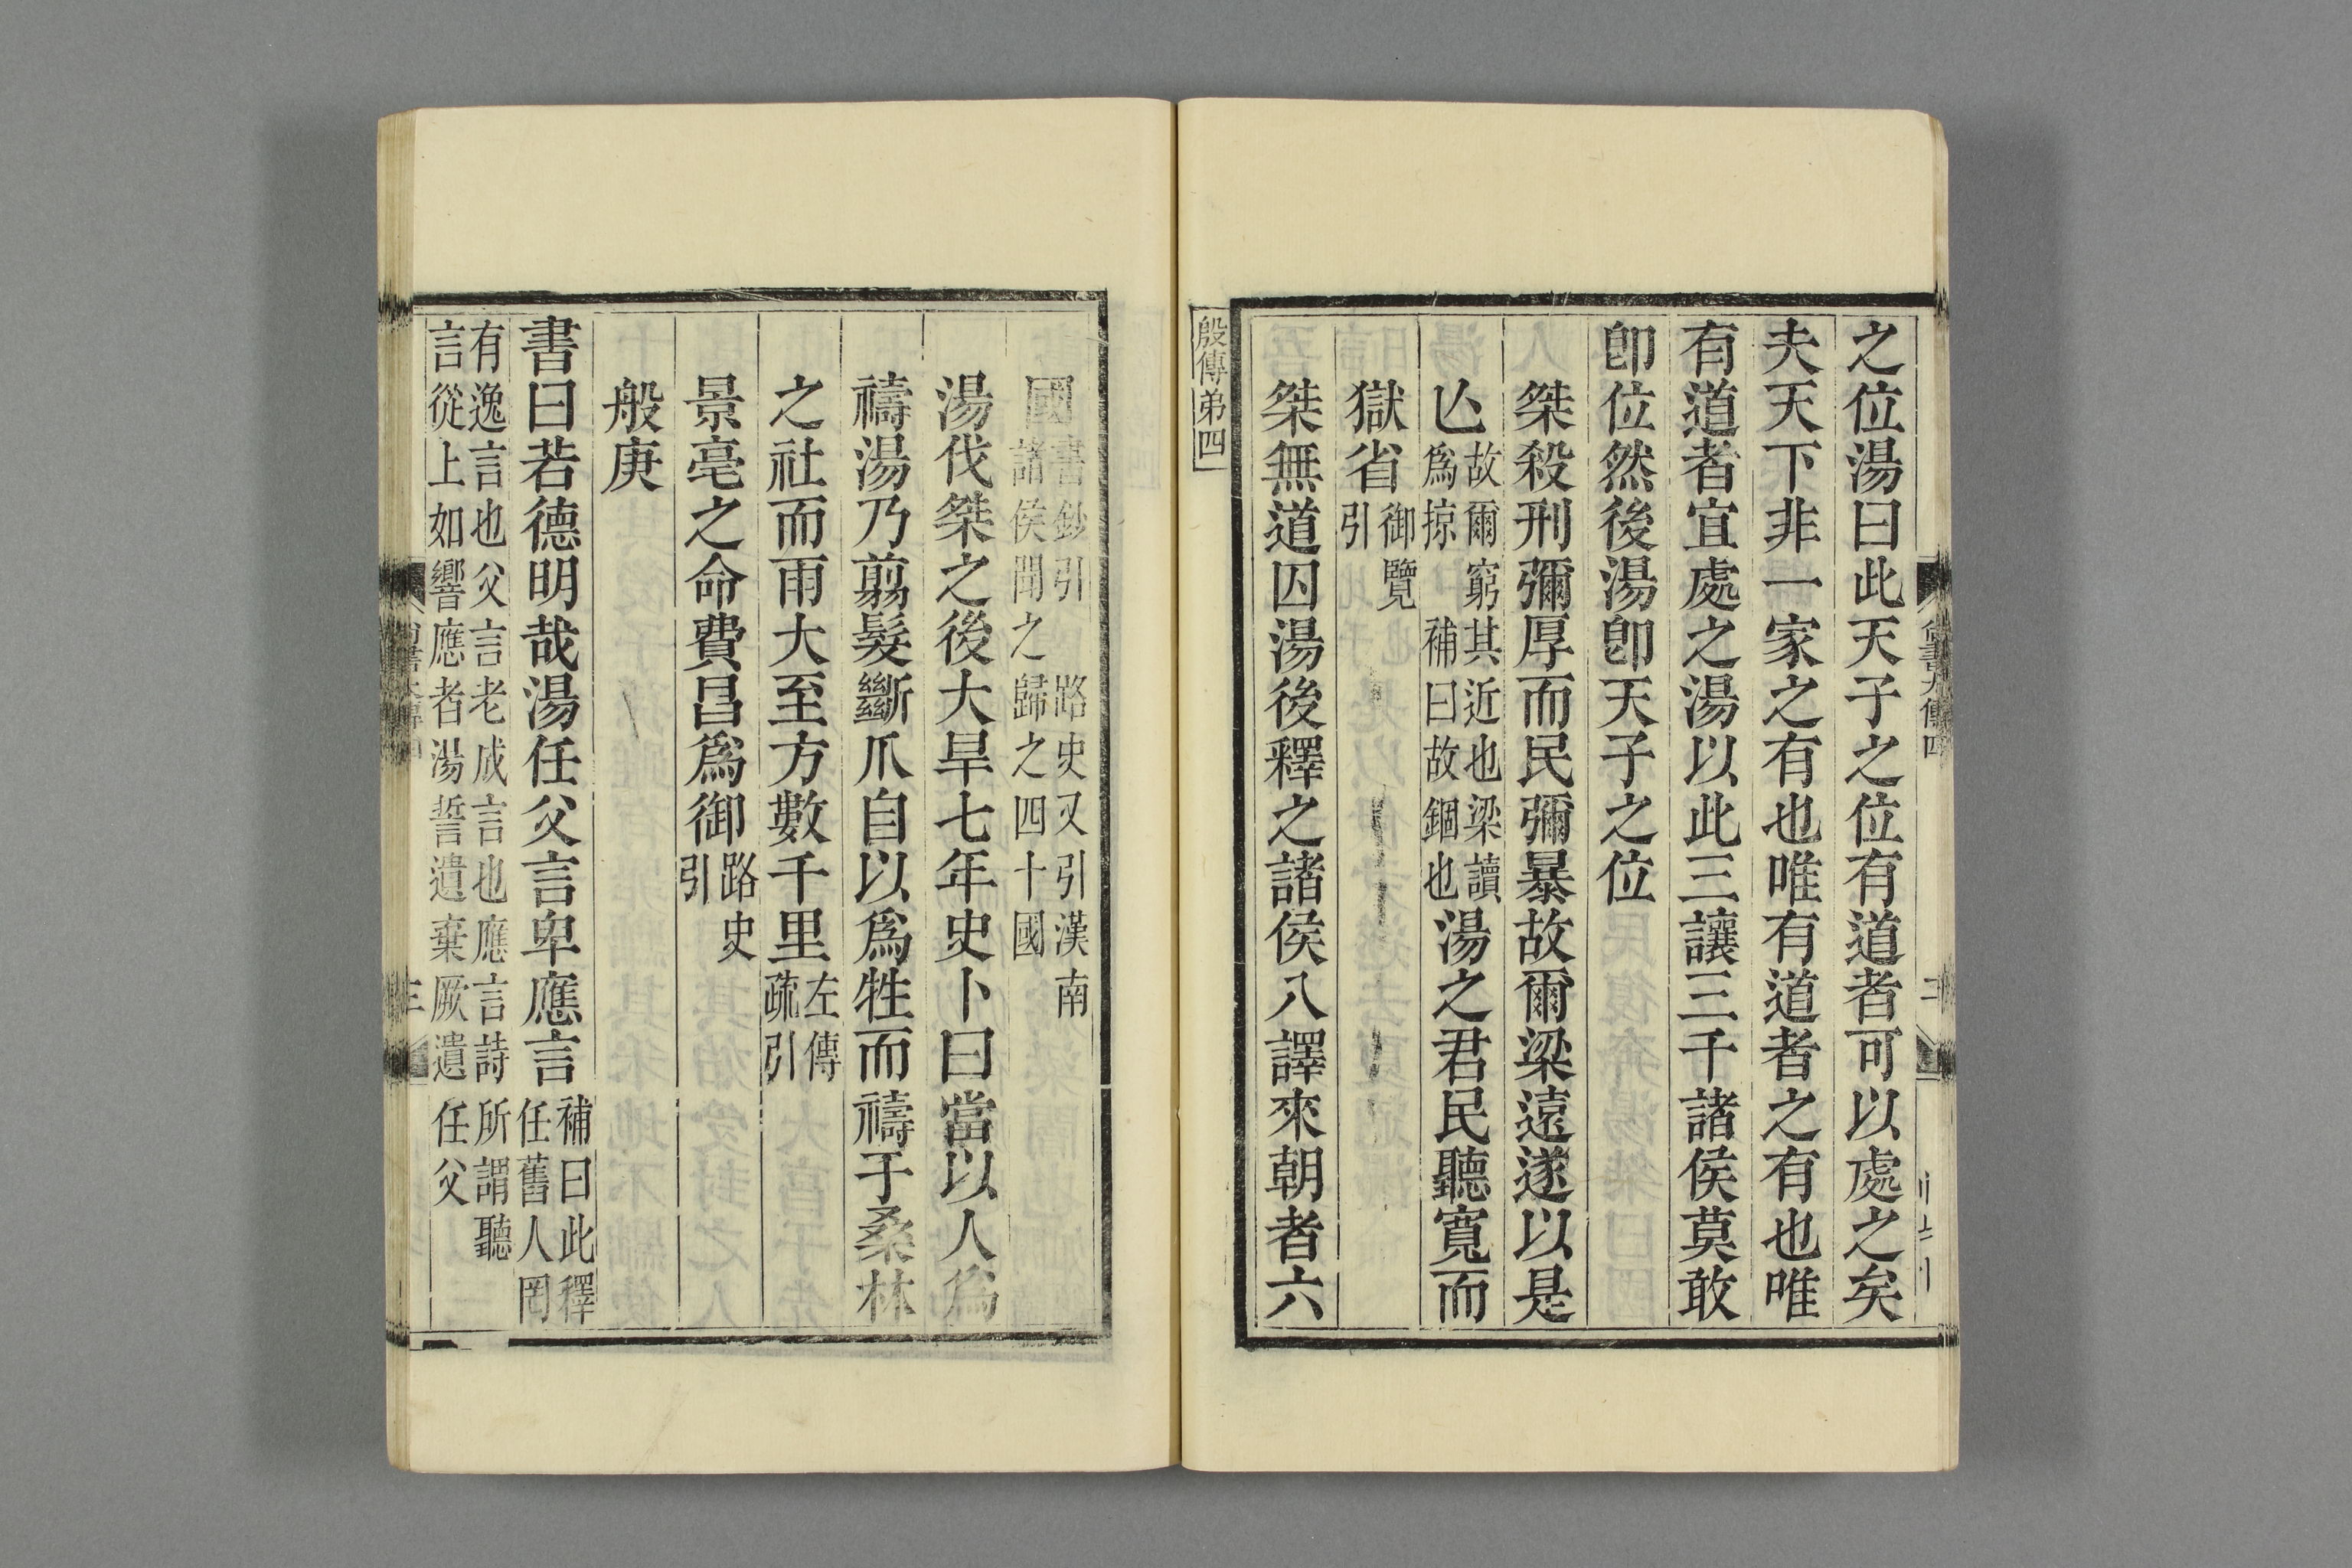 之位湯曰此天子之位有道者可以處之矣
夫天下非一家之有也唯有道者之有也唯
有道者宜處之湯以此三讓三千諸侯莫敢
卽位然後湯卽天子之位
桀殺刑彌厚而民彌暴故爾梁遠遂以是
亾故爾窮其近也梁讀爲掠補曰故錮也湯之君民聽寬而
獄省御覽引
桀無道囚湯後釋之諸侯八譯來朝者六
殷傳弟四
國書鈔引路史又引漢南諸侯聞之歸之四十國
湯伐桀之後大旱七年史卜曰當以人爲
禱湯乃翦髮斷爪自以爲牲而禱于桑林
之社而雨大至方數千里左傳疏引
景亳之命費昌爲御路史引
般庚
書曰若德明哉湯任父言卑應言補曰此釋任舊人罔
有逸言也父言老成言也應言詩所謂聽
言從上如響應者湯誓遺棄厥遺任父
尙書大傳四
二
三